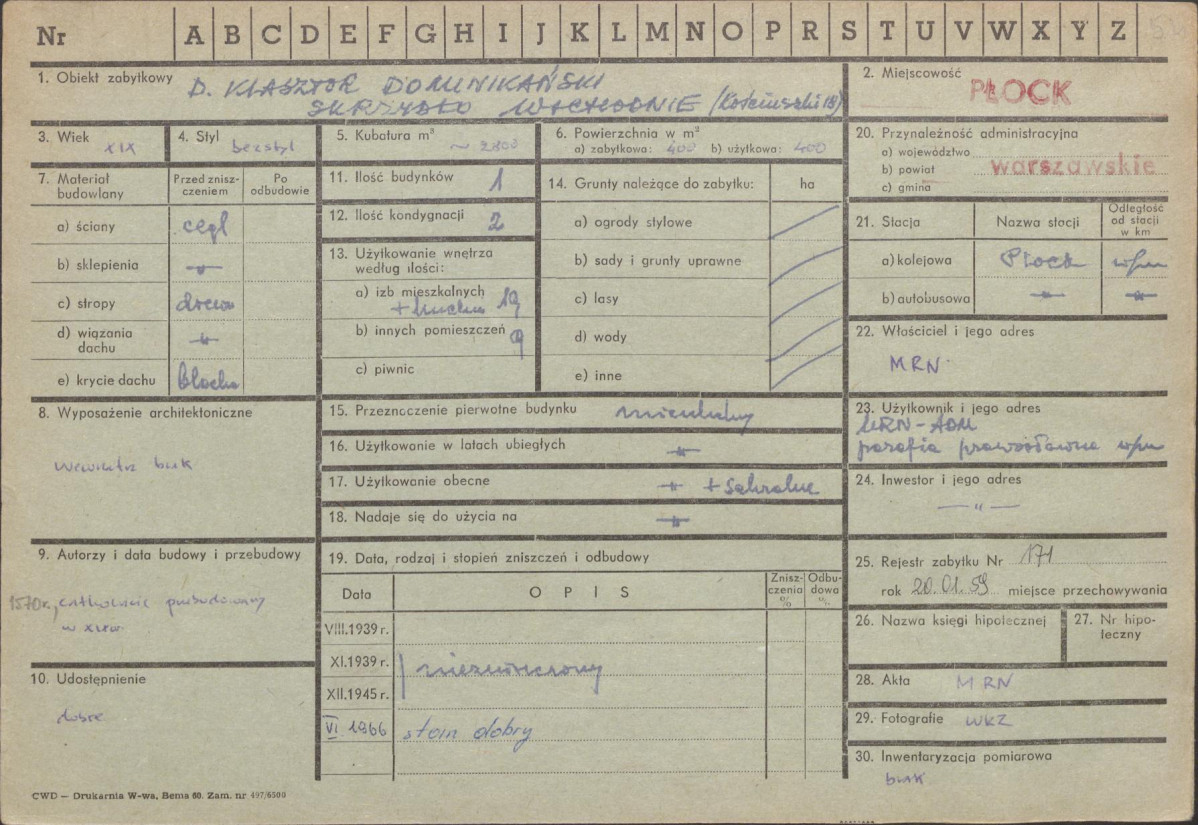 Nr A B C D E F G H I J K L M N O P R S T U V W X Y Z
1. Obiekt zabytkowy D. KLASZTOR DOMINIKAŃSKI
SKRZYDŁO WSCHODNIE (Kościuszki 18)
2. Miejscowość PŁOCK
3. Wiek XIX
4. Styl bezstyl
5. Kubatura m³ ~ 2800
6. Powierzchnia w m²
a) zabytkowa: 400 b) użytkowa: 400
7. Materiał budowlany
Przed zniszczeniem
Po odbudowie
a) ściany cegł
b) sklepienia -"-
c) stropy drewn
d) wiązania dachu -"-
e) krycie dachu blacha
8. Wyposażenie architektoniczne
wewnątrz brak
9. Autorzy i data budowy i przebudowy
1570 r., całkowicie przebudowany
w XIX w.
10. Udostępnienie
dobre
11. Ilość budynków 1
12. Ilość kondygnacji 2
13. Użytkowanie wnętrza
według ilości:
a) izb mieszkalnych 19
+ kuchn
b) innych pomieszczeń 9
c) piwnic
14. Grunty należące do zabytku: ha
a) ogrody stylowe
b) sady i grunty uprawne
c) lasy
d) wody
e) inne
15. Przeznaczenie pierwotne budynku mieszkalny
16. Użytkowanie w latach ubiegłych -"-
17. Użytkowanie obecne -"- + sakralne
18. Nadaje się do użycia na -"-
19. Data, rodzaj i stopień zniszczeń i odbudowy
Data OPIS Zniszczenia % Odbudowa %
VIII.1939 r.
XI.1939 r. niezniszczony
XII.1945 r.
VI 1966 stan dobry
20. Przynależność administracyjna
a) województwo
b) powiat warszawskie
c) gmina
21. Stacja Nazwa stacji Odległość od stacji w km
a) kolejowa Płock w/m
b) autobusowa -"- -"-
22. Właściciel i jego adres
MRN
23. Użytkownik i jego adres
MRN-ADM
parafia prawosławna w/m
24. Inwestor i jego adres
-"-
25. Rejestr zabytku Nr 171
rok 20.01.59 miejsce przechowywania
26. Nazwa księgi hipotecznej
27. Nr hipoteczny
28. Akta MRN
29. Fotografie WKZ
30. Inwentaryzacja pomiarowa
brak
CWD — Drukarnia W-wa, Bema 60. Zam. nr 497/6500